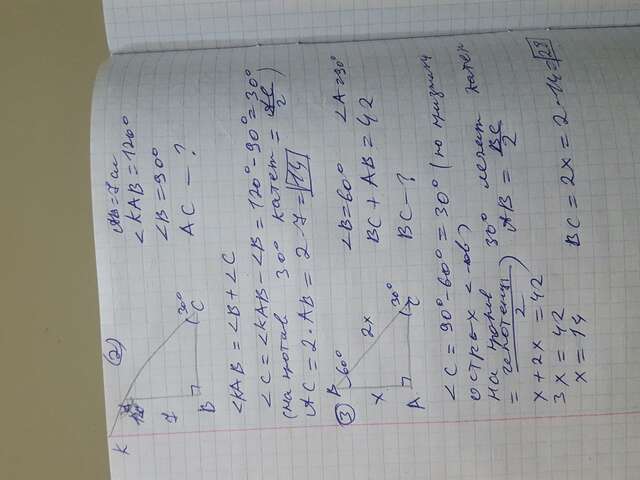 (2)
K
120°
7
B
C
30°
AB = 7 см
∠KAB = 120°
∠B = 90°
AC — ?
∠KAB = ∠B + ∠C
∠C = ∠KAB - ∠B = 120° - 90° = 30°
(на против 30° катет = AC/2)
AC = 2 · AB = 2 · 7 = 14
(3)
B
60°
x
2x
A
30°
C
∠B = 60° ∠A = 90°
BC + AB = 42
BC — ?
∠C = 90° - 60° = 30° (по признаку
острых ∠-лов)
на против 30° лежит катет
= гепотенузы/2 AB = BC/2
x + 2x = 42
3x = 42
x = 14
BC = 2x = 2 · 14 = 28